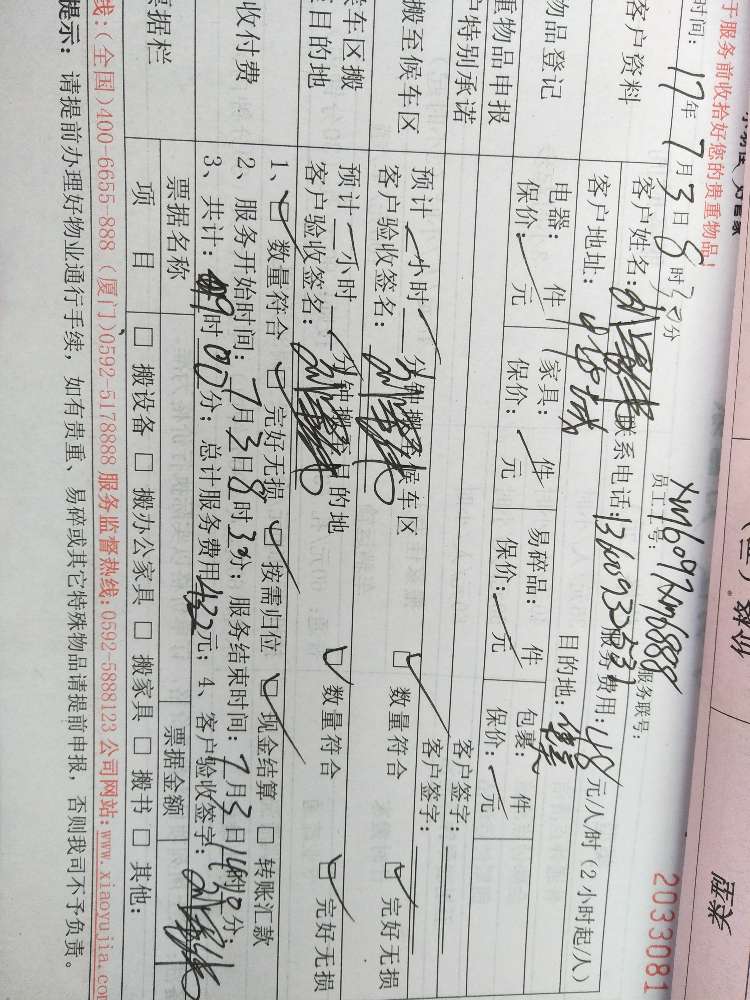 于服务前收拾好您的贵重物品!
员工工号: XM6097 XM6888 服务联号:
2033081
时间: 17年 7月 3日 8时30分
客户资料
客户姓名:
联系电话:
服务费用: 48 元/人/时 (2小时起/人)
客户地址:
目的地:
物品登记
电器: 件 家具: 件 易碎品: 件 包裹: 件
保价: 元 保价: 元 保价: 元 保价: 元
重物品申报
户特别承诺
客户签字:
客户签字:
搬至候车区
预计 小时 分钟搬至候车区
客户验收签名:
□ 数量符合 □ 完好无损
候车区搬
目的地
预计 小时 分钟搬至目的地
客户验收签名:
□ 数量符合 □ 完好无损
收付费
1、□ 数量符合 □ 完好无损 □ 按需归位 □ 现金结算 □ 转账汇款
2、服务开始时间: 7月3日8时30分; 服务结束时间: 7月3日
3、共计: 时00分; 总计服务费用432元; 4、客户验收签字:
票据栏
票据名称
票据金额
项 目
□ 搬设备 □ 搬办公家具 □ 搬家具 □ 搬书 □ 其他:
线:(全国)400-6655-888 (厦门)0592-5178888 服务监督热线:0592-5888123 公司网站:www.xiaoyujia.com
提示: 请提前办理好物业通行手续, 如有贵重、易碎或其它特殊物品请提前申报, 否则我司不予负责。